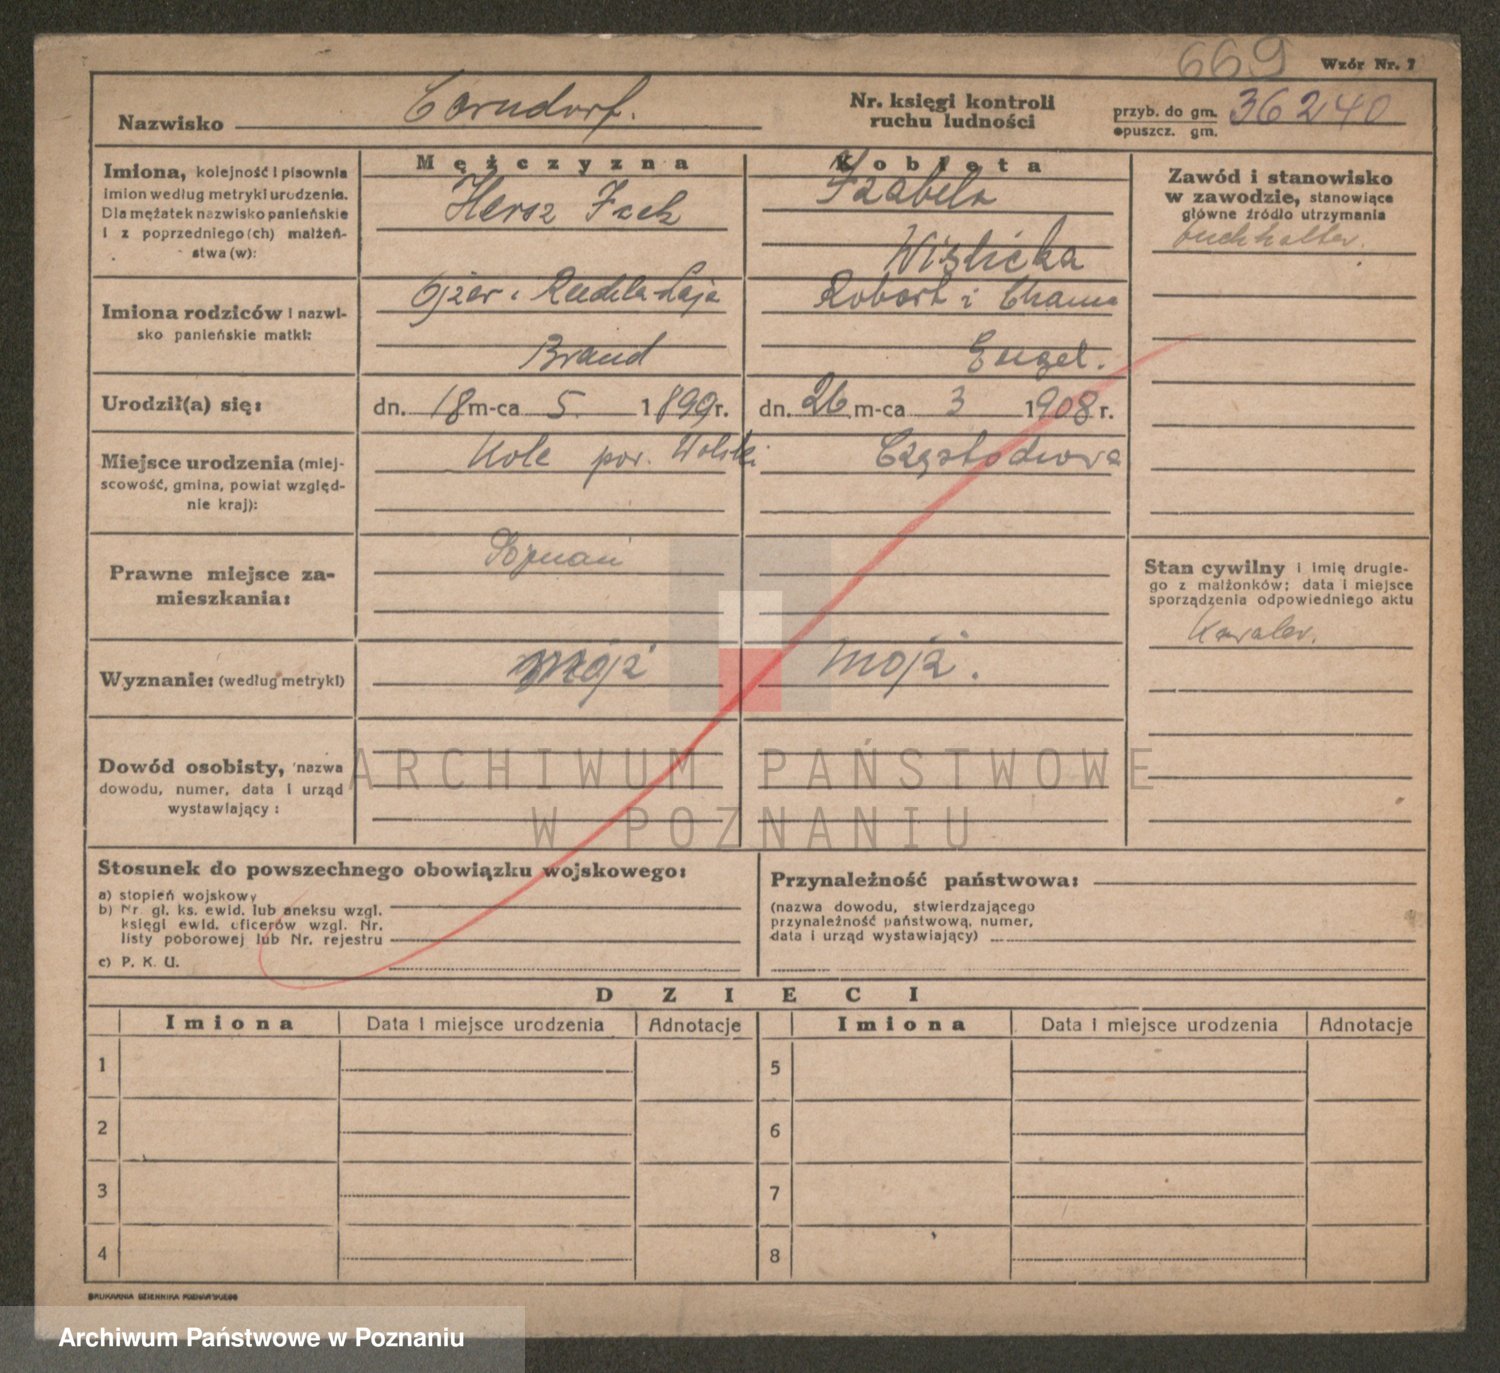 669
Wzór Nr. 7
Nazwisko Corndorf.
Nr. księgi kontroli
ruchu ludności
przyb. do gm.
opuszcz. gm.
36240
Imiona, kolejność i pisownia
imion według metryki urodzenia.
Dla mężatek nazwisko panieńskie
i z poprzedniego (ch) małżeń-
stwa (w):
Mężczyzna
Hersz Icek
Kobieta
Izabela
Wiślicka
Zawód i stanowisko
w zawodzie, stanowiące
główne źródło utrzymania
buchhalter.
Imiona rodziców i nazwi-
sko panieńskie matki:
Ojzer i Rudla-Laja
Brand
Robert i Chama
Engel.
Urodził(a) się:
dn. 18 m-ca 5. 1899 r.
dn. 26 m-ca 3 1908 r.
Miejsce urodzenia (miej-
scowość, gmina, powiat względ-
nie kraj):
Kole pow. Kolski
Częstochowa
Prawne miejsce za-
mieszkania:
Poznań
Stan cywilny i imię drugie-
go z małżonków; data i miejsce
sporządzenia odpowiedniego aktu
Kawaler.
Wyznanie: (według metryki)
mojż
mojż.
Dowód osobisty, nazwa
dowodu, numer, data i urząd
wystawiający :
ARCHIWUM PAŃSTWOWE
W POZNANIU
Stosunek do powszechnego obowiązku wojskowego:
a) stopień wojskowy
b) Nr. gł. ks. ewid. lub aneksu wzgl.
księgi ewid. oficerów wzgl. Nr.
listy poborowej lub Nr. rejestru
c) P. K. U.
Przynależność państwowa:
(nazwa dowodu, stwierdzającego
przynależność państwową, numer,
data i urząd wystawiający)
DZIECI
Imiona Data i miejsce urodzenia Adnotacje Imiona Data i miejsce urodzenia Adnotacje
1 5
2 6
3 7
4 8
DRUKARNIA DZIENNIKA POZNAŃSKIEGO
Archiwum Państwowe w Poznaniu